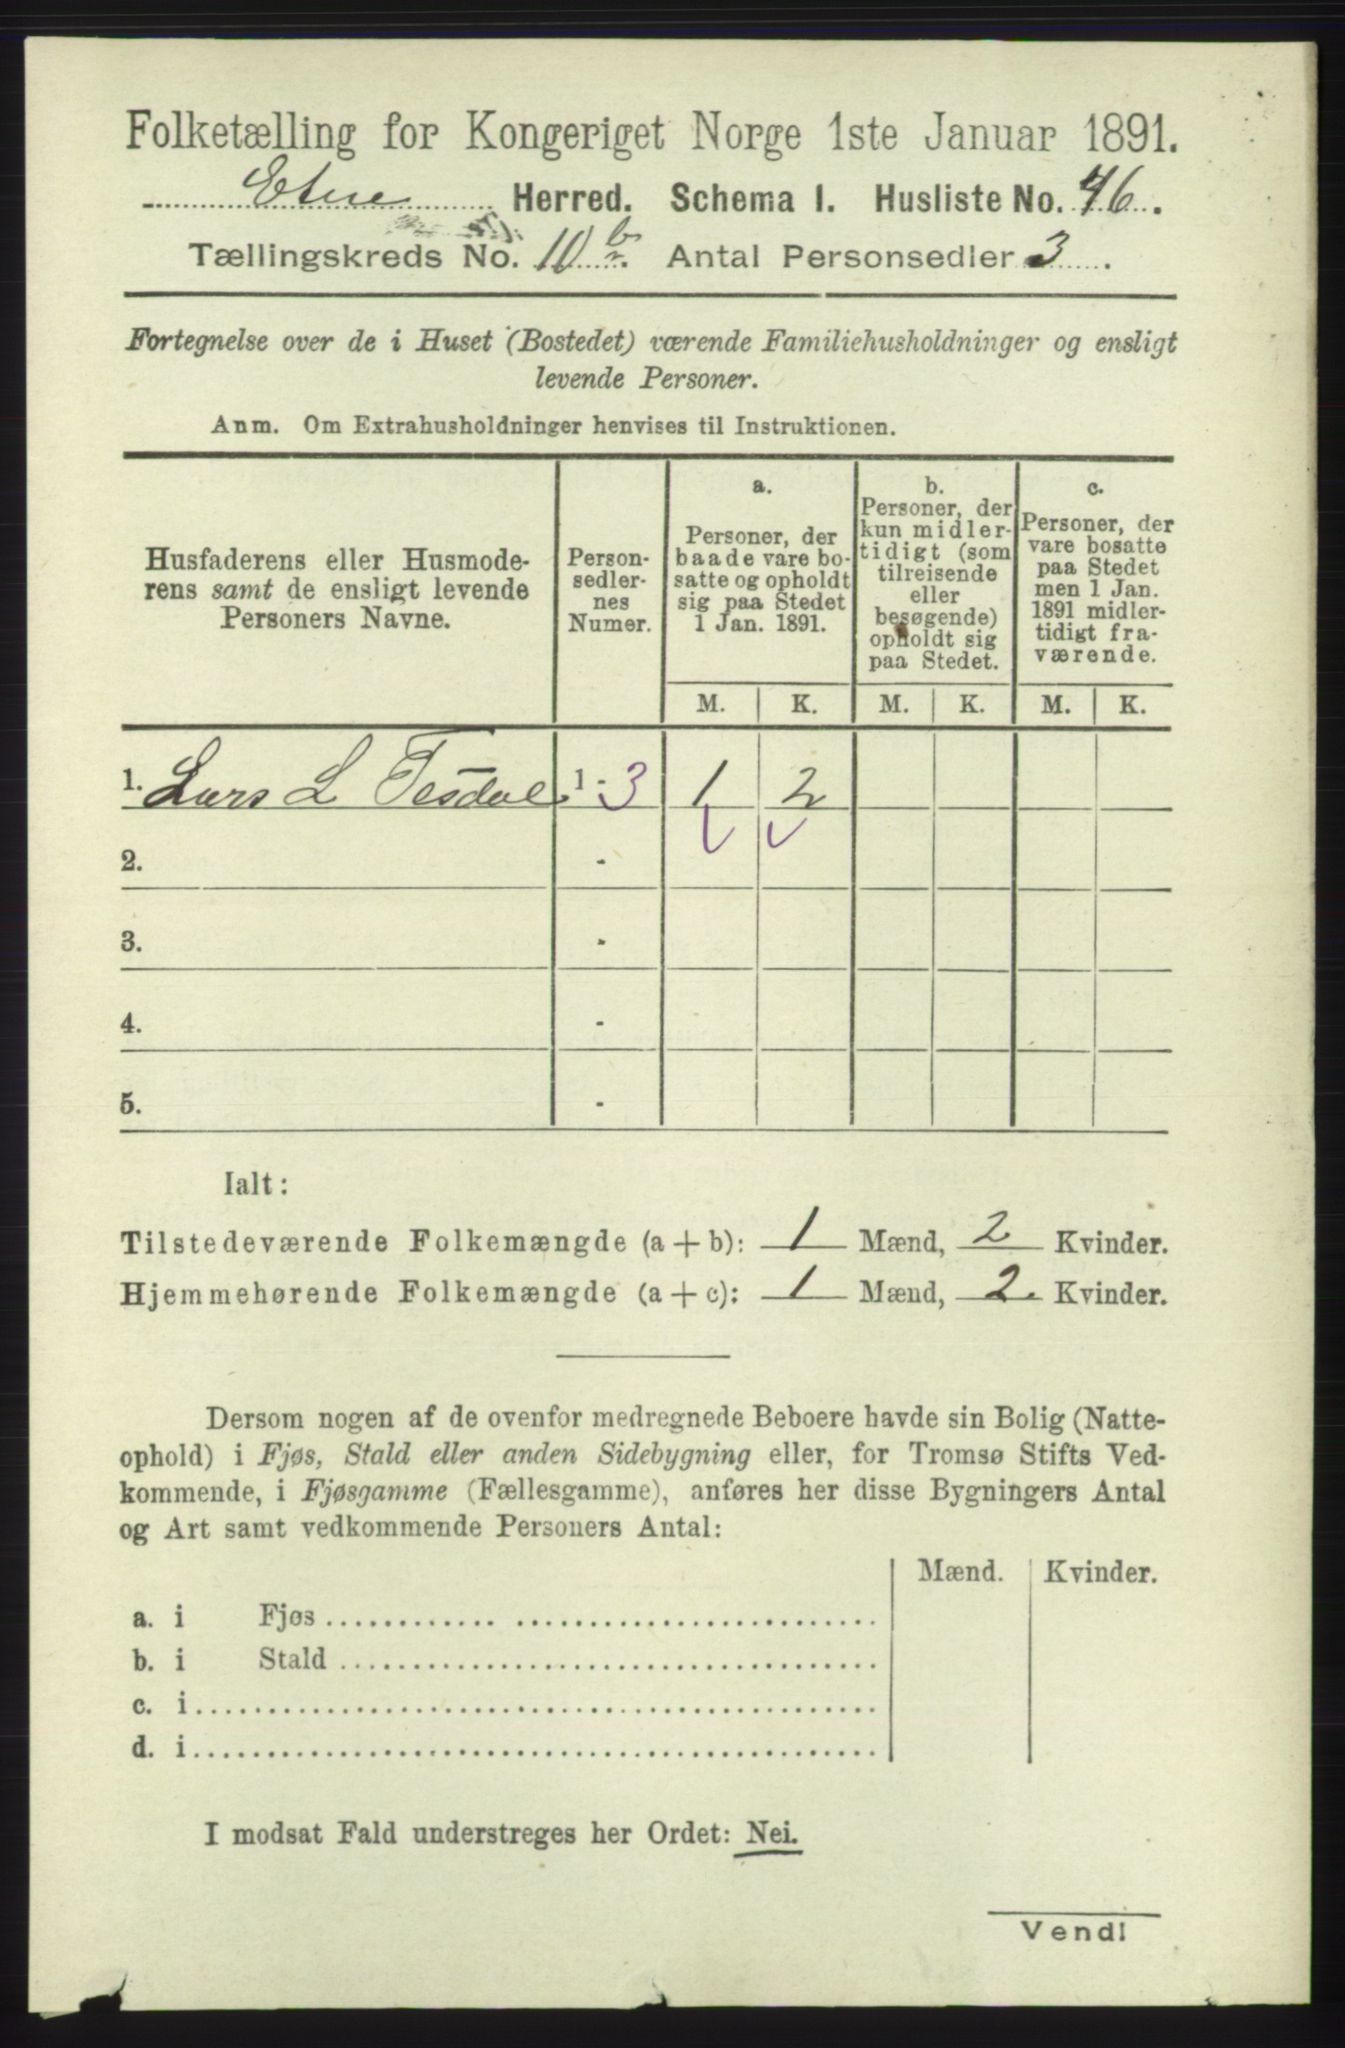 Folketælling for Kongeriget Norge 1ste Januar 1891.
Etne Herred. Schema I. Husliste No. 46.
Tællingskreds No. 10 b. Antal Personsedler 3.
Fortegnelse over de i Huset (Bostedet) værende Familiehusholdninger og ensligt
levende Personer.
Anm. Om Extrahusholdninger henvises til Instruktionen.
Husfaderens eller Husmode-
rens samt de ensligt levende
Personers Navne.
Person-
sedler-
nes
Numer.
a.
Personer, der
baade vare bo-
satte og opholdt
sig paa Stedet
1 Jan. 1891.
b.
Personer, der
kun midler-
tidigt (som
tilreisende
eller
besøgende)
opholdt sig
paa Stedet.
c.
Personer, der
vare bosatte
paa Stedet
men 1 Jan.
1891 midler-
tidigt fra-
værende.
M. K. M. K. M. K.
1. Lars L Tesdal 1 - 3 1 2
2. -
3. -
4. -
5. -
Ialt:
Tilstedeværende Folkemængde (a + b): 1 Mænd, 2 Kvinder.
Hjemmehørende Folkemængde (a + c): 1 Mænd, 2 Kvinder.
Dersom nogen af de ovenfor medregnede Beboere havde sin Bolig (Natte-
ophold) i Fjøs, Stald eller anden Sidebygning eller, for Tromsø Stifts Ved-
kommende, i Fjøsgamme (Fællesgamme), anføres her disse Bygningers Antal
og Art samt vedkommende Personers Antal:
Mænd. Kvinder.
a. i Fjøs
b. i Stald
c. i
d. i
I modsat Fald understreges her Ordet: Nei.
Vend!